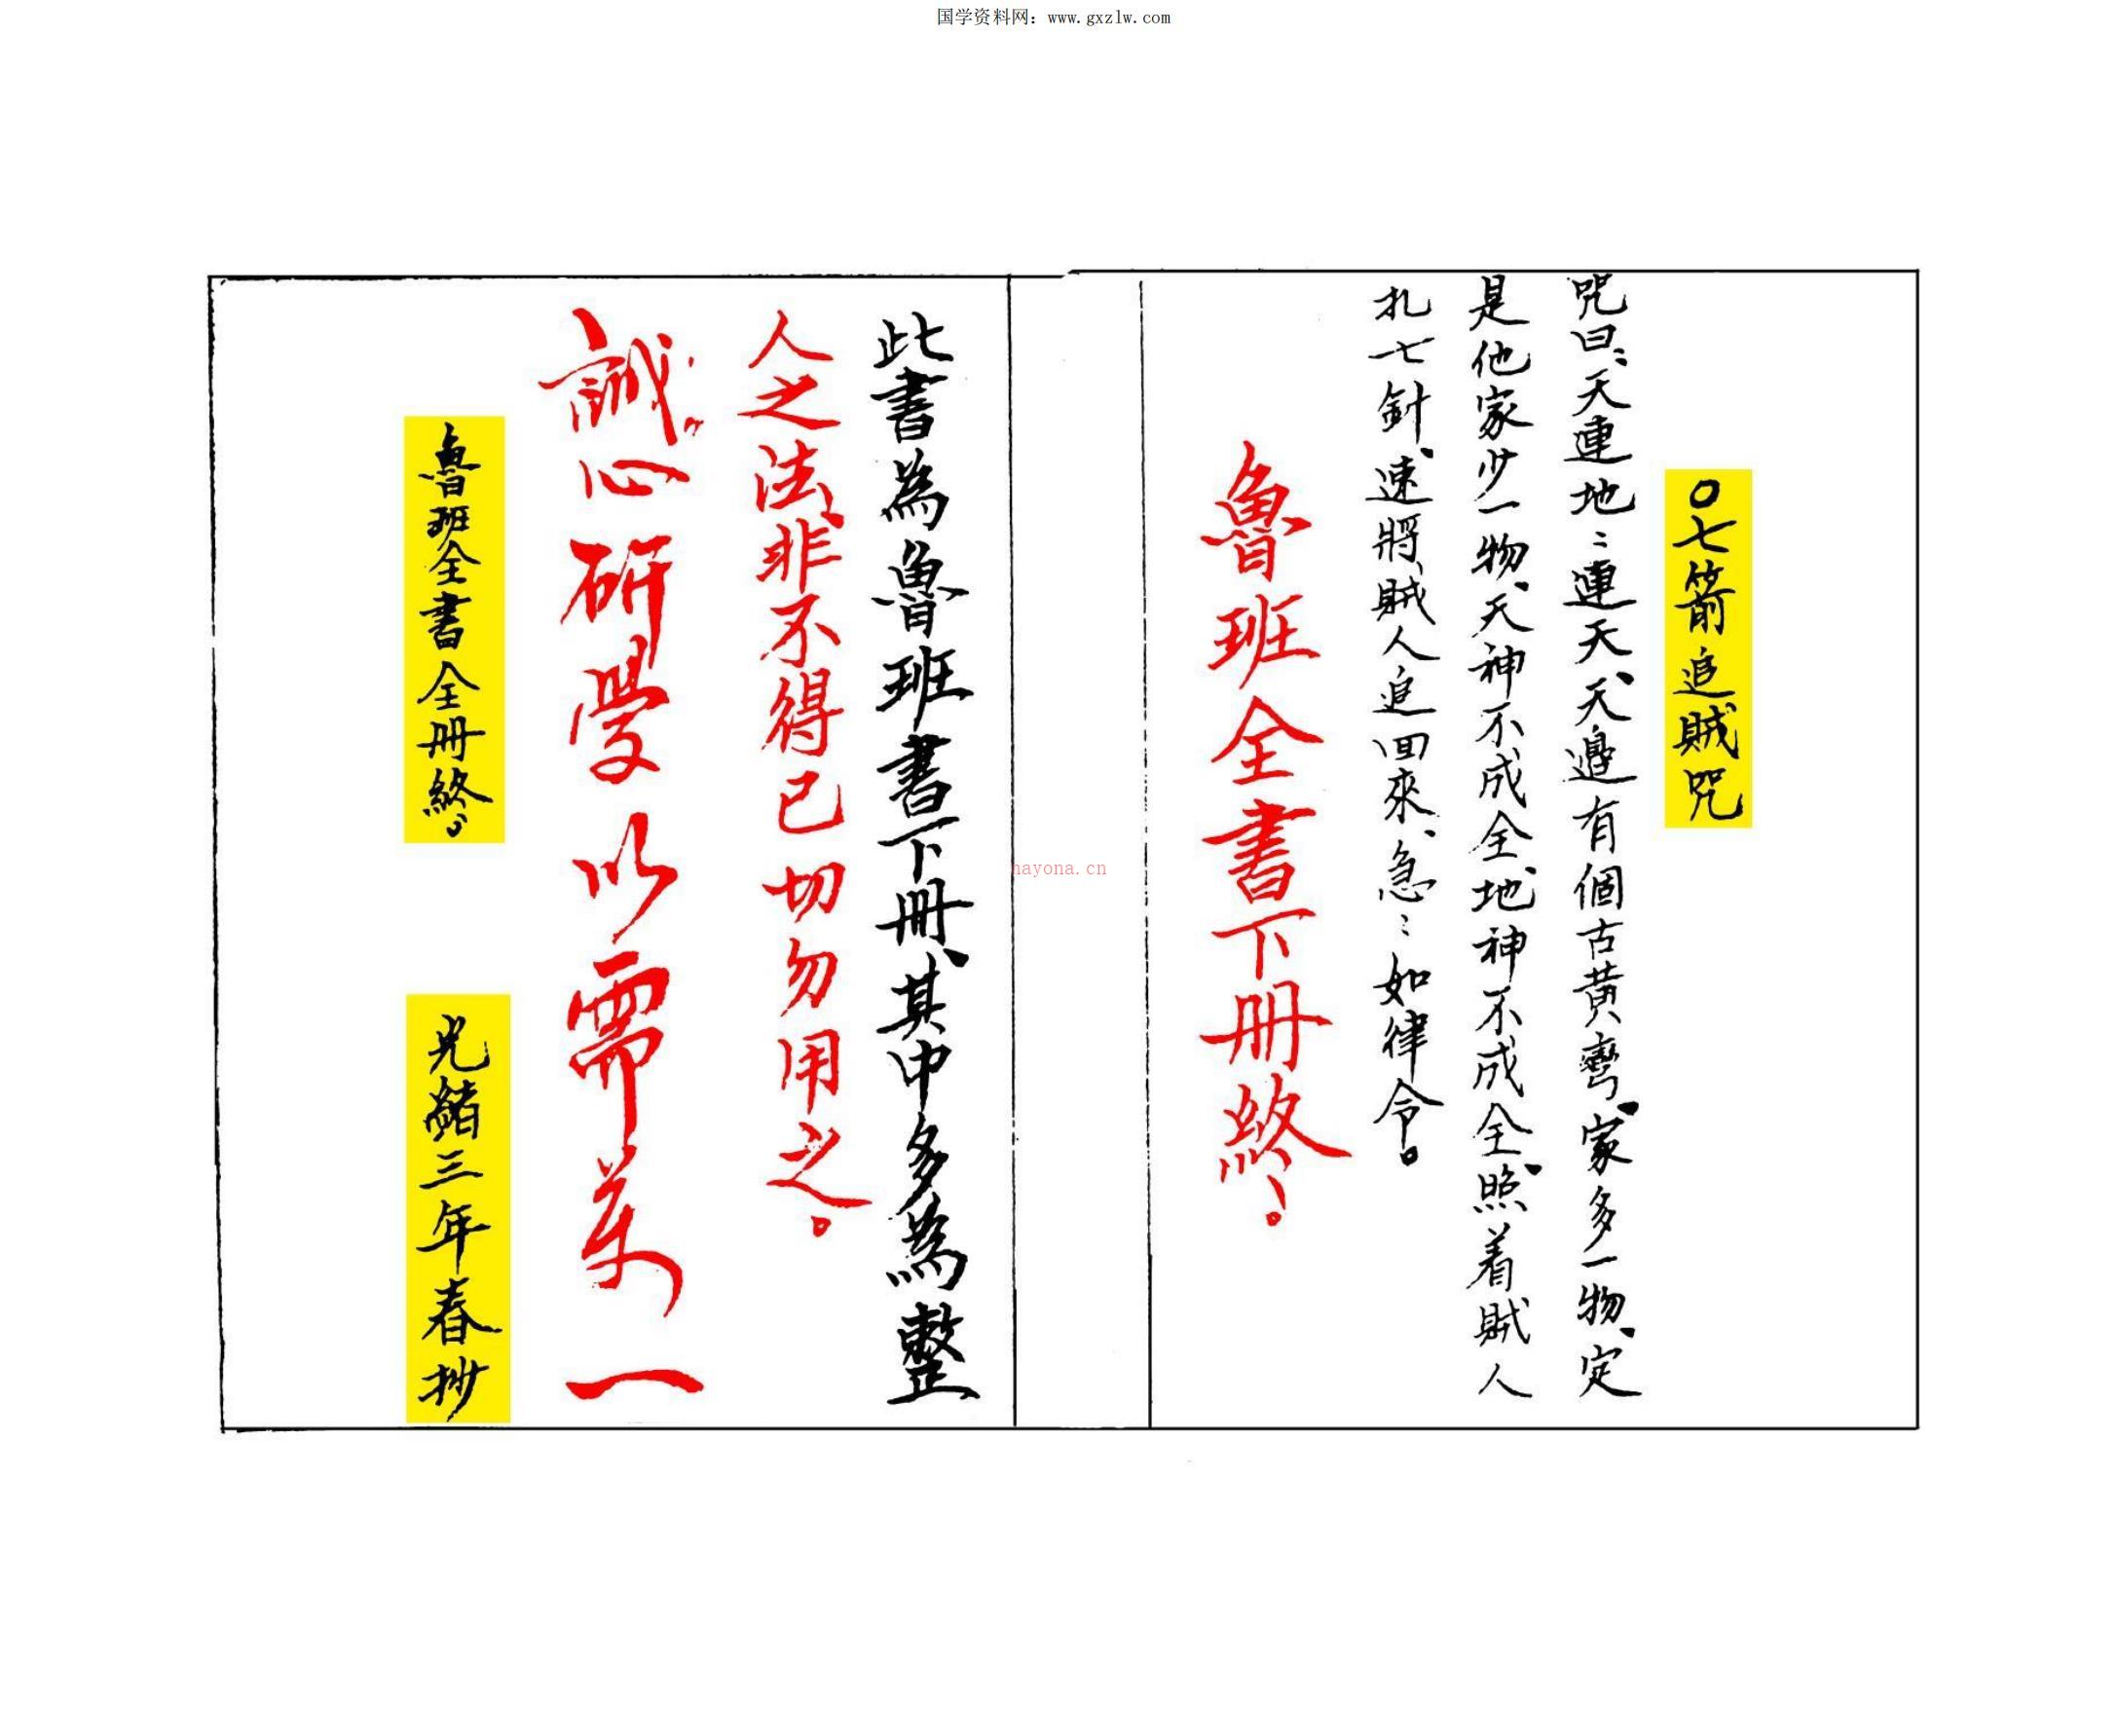 国学资料网：www.gxzlw.com
〇七箭追賊咒
咒曰：天連地：連天、天邊有個古黄彎、家多一物、定
是他家少一物、天神不成全、地神不成全、照着賊人
扎七針、速將賊人追回來、急：如律令。
魯班全書下冊終！。
此書為魯班書下冊、其中多為整
人之法、非不得已切勿用之。
誠心研學以需萬一
魯班全書全冊終。
光緒三年春抄
hayona.cn